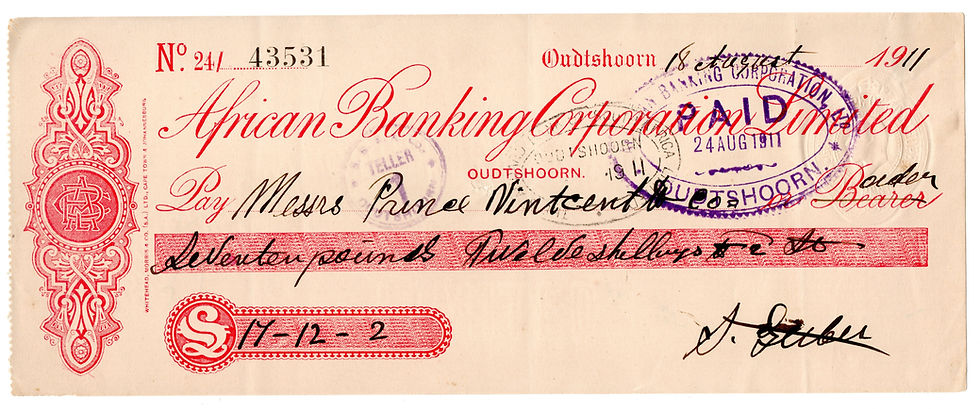 No. 24/ 43531
Oudtshoorn 18 August 1911
African Banking Corporation Limited
OUDTSHOORN.
Pay Messrs Prince Vintcent & Cos or Bearer Order
Seventeen pounds Twelve shillings & 2
£ 17-12-2
WHITEHEAD, MORRIS & CO. (S.A.) LTD., CAPE TOWN & JOHANNESBURG.
BANKING CORPORATION, LTD.
PAID
24 AUG 1911
OUDTSHOORN
TELLER
1
OUDTSHOORN